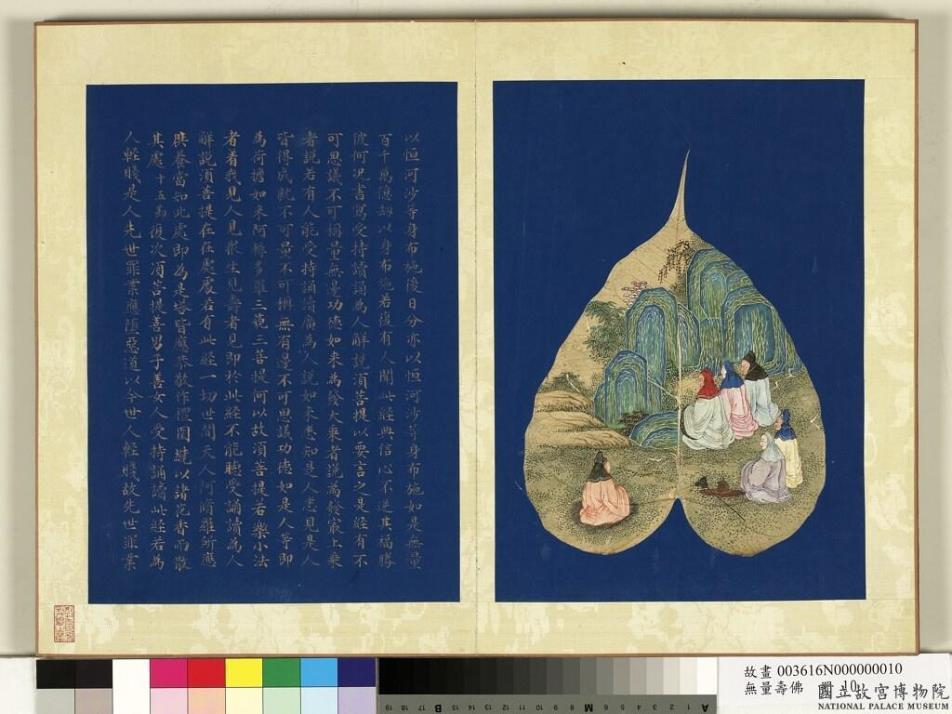 以恒河沙等身布施後日分亦以恒河沙等身布施如是無量
百千萬億劫以身布施若復有人聞此經典信心不逆其福勝
彼何況書寫受持讀誦為人解說須菩提以要言之是經有不
可思議不可稱量無邊功德如來為發大乘者說為發最上乘
者說若有人能受持讀誦廣為人說如來悉知是人悉見是人
皆得成就不可量不可稱無有邊不可思議功德如是人等即
為荷擔如來阿耨多羅三藐三菩提何以故須菩提若樂小法
者着我見人見眾生見壽者見即於此經不能聽受讀誦為人
解說須菩提在在處處若有此經一切世間天人阿脩羅所應
供養當知此處即為是塔皆應恭敬作禮圍繞以諸花香而散
其處十五為復次須菩提善男子善女人受持讀誦此經若為
人輕賤是人先世罪業應墮惡道以今世人輕賤故先世罪業
故畫 003616N000000010
無量壽佛
國立故宮博物院
NATIONAL PALACE MUSEUM
19 18 17 16 15 14 13 12 11 10 9 8 7 6 5 4 3 2 1
B M A